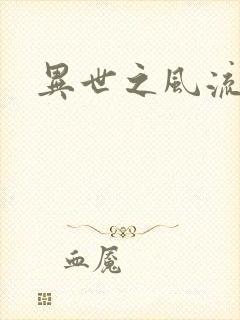 異世之風流
血魘